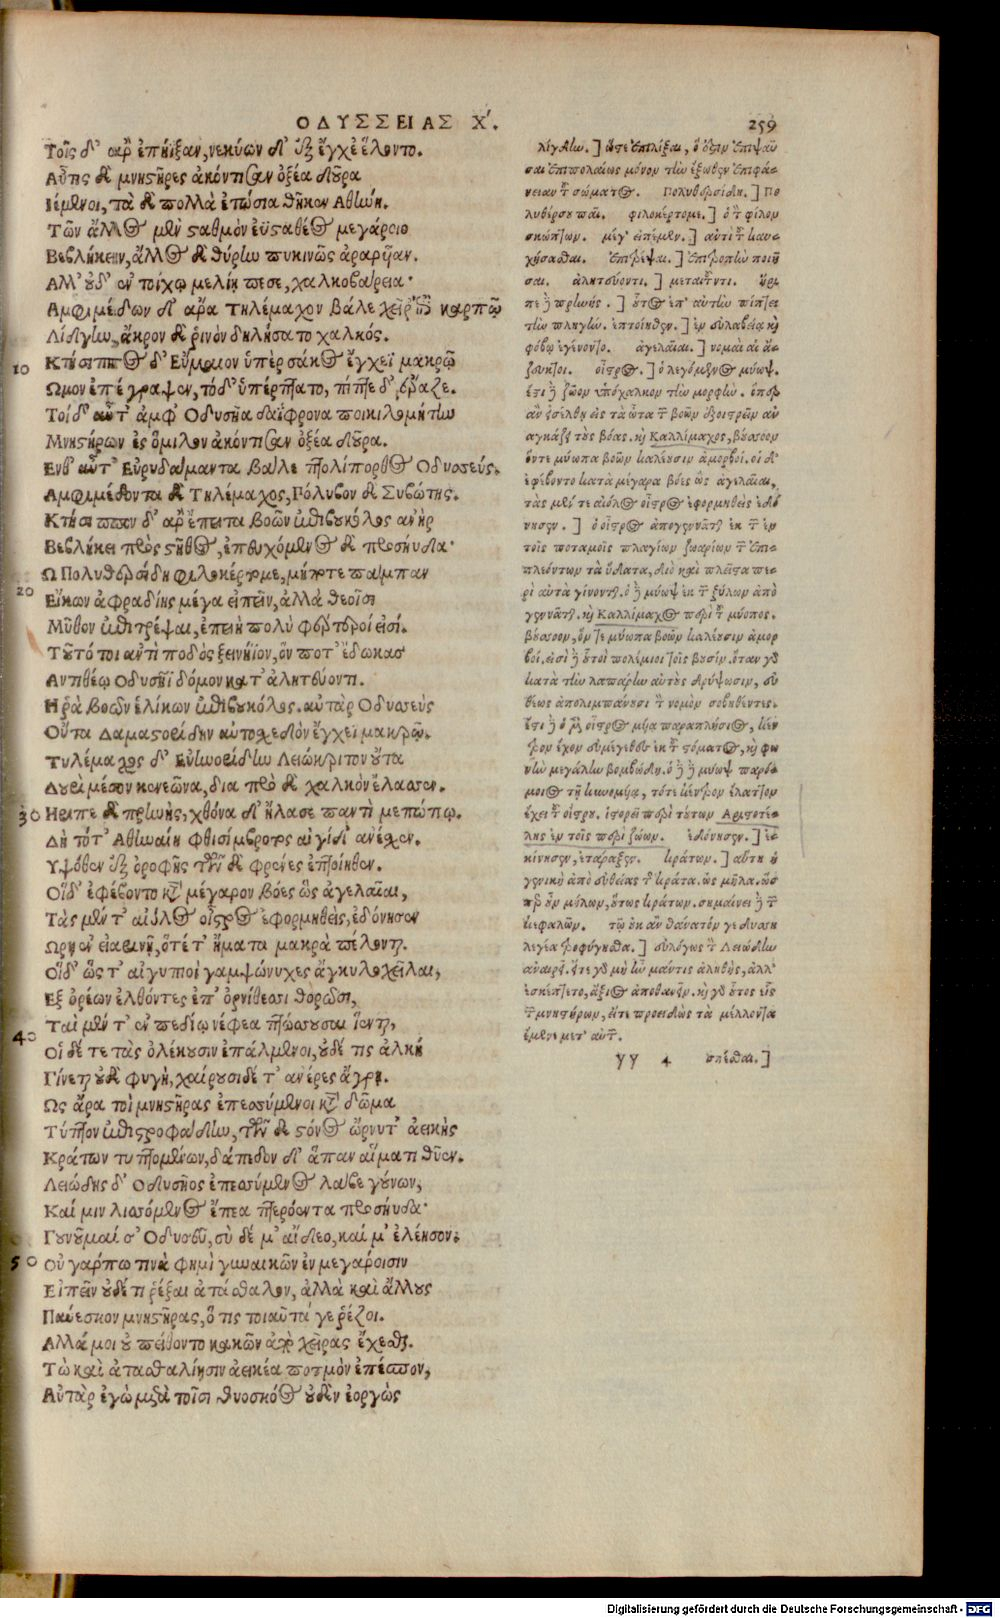 ΟΔΥΣΣΕΙΑΣ Χ΄.
259
Τοῖς δ' ἄρ' ἐπήϊξαν, νεκύων δ' ἐξ ἔγχε' ἕλοντο.
Αὖτις δὲ μνηστῆρες ἀκόντισαν ὀξέα δοῦρα
Ἱέμενοι, τὰ δὲ πολλὰ ἐτώσια θῆκεν Ἀθήνη.
Τῶν ἄλλος μὲν σταθμὸν ἐϋσταθέος μεγάροιο
Βεβλήκειν, ἄλλος δὲ θύρην πυκινῶς ἀραρῆαν.
Αλλ' οὐδ' ἐν τοίχῳ μελίη πέσε, χαλκοβάρεια·
Αμφιμέδων δ' ἄρα Τηλέμαχον βάλε χεῖρ' ἐπὶ καρπῷ
Λίγδην, ἄκρον δὲ ῥινὸν δηλήσατο χαλκός.
10
Κτήσιππος δ' Εὔμαιον ὑπὲρ σάκος ἔγχεϊ μακρῷ
Ωμον ἐπέγραψεν, τὸ δ' ὑπέρπτατο, πῖπτε δ' ἔραζε.
Τοὶ δ' αὖτ' ἀμφ' Οδυσῆα δαΐφρονα ποικιλομήτην
Μνηστήρων ἐς ὅμιλον ἀκόντισαν ὀξέα δοῦρα.
Ενθ' αὖτ' Εὐρυδάμαντα βάλε πτολίπορθος Οδυσσεύς.
Αμφιμέδοντα δὲ Τηλέμαχος, Πόλυβον δὲ Συβώτης.
Κτήσιππον δ' ἄρ' ἔπειτα βοῶν ἐπιβουκόλος ἀνὴρ
Βεβλήκει πρὸς στῆθος, ἐπευχόμενος δὲ προσηύδα·
Ω Πολυθερσείδη φιλοκέρτομε, μήποτε πάμπαν
20
Εἴκων ἀφραδίης μέγα εἰπεῖν, ἀλλὰ θεοῖσι
Μῦθον ἐπιτρέψαι, ἐπειὴ πολὺ φέρτεροί εἰσί.
Τοῦτό τοι ἀντὶ ποδὸς ξεινήϊον, ὅν ποτ' ἔδωκας
Αντιθέῳ Οδυσῆϊ δόμον κατ' ἀλητεύοντι.
Η ῥὰ βοῶν ἑλίκων ἐπιβουκόλος. αὐτὰρ Οδυσσεὺς
Οὖτα Δαμαστορίδην αὐτοσχεδὸν ἔγχεϊ μακρῷ.
Τηλέμαχος δ' Εὐηνορίδην Λειώκριτον οὖτα
Δουρὶ μέσον κενεῶνα, διὰ πρὸ δὲ χαλκὸν ἔλασσεν.
30
Ηριπε δὲ πρηνὴς, χθόνα δ' ἤλασε παντὶ μετώπῳ.
Δὴ τότ' Αθηναίη φθισίμβροτος αἰγίδ' ἀνέσχεν.
Υψόθεν ἐξ ὀροφῆς τῶν δὲ φρένες ἐπτοίηθεν.
Οἵδ' ἐφέβοντο κατὰ μέγαρον βόες ὣς ἀγελαῖαι,
Τὰς μέν τ' αἰόλος οἶστρος ἐφορμηθεὶς, ἐδόνησεν
Ωρῃ ἐν εἰαρινῇ, ὅτέ τ' ἤματα μακρὰ πέλονται.
Οἵδ' ὥς τ' αἰγυπιοὶ γαμψώνυχες ἀγκυλοχεῖλαι,
Εξ ὀρέων ἐλθόντες ἐπ' ὀρνίθεσσι θορῶσι,
40
Ταὶ μέν τ' ἐν πεδίῳ νέφεα πτώσσουσαι ἵενται,
Οἱ δέ τε τὰς ὀλέκουσιν ἐπάλμενοι, οὐδέ τις ἀλκὴ
Γίνεται οὐδὲ φυγὴ, χαίρουσι δέ τ' ἀνέρες ἄγρῃ.
Ως ἄρα τοὶ μνηστῆρας ἐπεσσύμενοι κατὰ δῶμα
Τύπτον ἐπιστροφάδην, τῶν δὲ στόνος ὤρνυτ' ἀεικὴς
Κράτων τυπτομένων, δάπεδον δ' ἅπαν αἵματι θῦεν.
Λειώδης δ' Οδυσῆος ἐπεσσύμενος λάβε γούνων,
Καί μιν λισσόμενος ἔπεα πτερόεντα προσηύδα·
Γουνοῦμαί σ' Οδυσσεῦ, σὺ δέ μ' αἴδεο, καί μ' ἐλέησον·
50
Οὐ γάρ πω τινὰ φημὶ γυναικῶν ἐν μεγάροισιν
Εἰπεῖν οὐδέ τι ῥέξαι ἀτάσθαλον, ἀλλὰ καὶ ἄλλους
Παύεσκον μνηστῆρας, ὅ τις τοιαῦτά γε ῥέζοι.
Αλλά μοι οὐ πείθοντο κακῶν ἀπὸ χεῖρας ἔχεσθαι.
Τῷ καὶ ἀτασθαλίῃσιν ἀεικέα πότμον ἐπέσπον,
Αὐτὰρ ἐγὼ μετὰ τοῖσι θυοσκόος οὐδὲν ἐοργὼς
λίγδην.] ὥστε ἐπιλέξαι, ὅ ἐστιν ἐπιψαῦ
σαι ἐπιπολαίως μόνον τὴν ἔξωθεν ἐπιφά-
νειαν τοῦ σώματος. Πολυθερσείδη.] Πο
λυθέρσου παῖ. φιλοκέρτομε.] ὁ τοῦ φίλου
σκώπτων. μέγ' εἰπέμεν.] ἀντὶ τοῦ καυ-
χήσασθαι. Ἐπιτρέψαι.] Ἐπιτροπὴν ποιῆ
σαι. ἀλητεύοντι.] μεταιτοῦντι. ἤρι
πε δὲ πρηνής.] οὗτος ἐπ' αὐτὴν πίπτει
τὴν πληγήν. ἐπτοίηθεν.] ἐν εὐλαβείᾳ καὶ
φόβῳ ἐγένοντο. ἀγελαῖαι.] νομάδαι ἄ-
ζευκτοι. οἶστρος.] ὁ λεγόμενος μύωψ.
ἔστι δὲ ζῶον ὑπόχαλκον τὴν μορφήν. ἐπὰν
ἂν εἰσέλθῃ εἰς τὰ ὦτα τῶν βοῶν ἐξοιστρᾶν ἀν
αγκάζει τοὺς βόας. καὶ Καλλίμαχος, βουσόον
ὅντε μύωπα βοῶν καλέουσιν ἀμορβοί. οἱ δ'
ἐφέβοντο κατὰ μέγαρα βόες ὣς ἀγελαῖαι,
τὰς μέν τε αἰόλος οἶστρος ἐφορμηθεὶς ἐδό
νησεν.] ὁ οἶστρος ἀπογεννᾶται ἐκ τῶν ἐν
τοῖς ποταμοῖς πλαγίων ζωαρίων τῶν ἐπι-
πλεόντων τὰ ὕδατα, διὸ καὶ πλεῖστα πε-
ρὶ αὐτὰ γίνονται. ὁ δὲ μύωψ ἐκ τῶν ξύλων ἀπο
γεννᾶται. καὶ Καλλίμαχος περὶ τοῦ μύοπος.
βουσόον, ὅντε μύωπα βοῶν καλέουσιν ἀμορ
βοί. εἰσὶ δὲ οὗτοι πολέμιοι τοῖς βουσίν. ὅταν γὰρ
κατὰ τὴν λαπάρην αὐτοὺς δρύψωσιν, εὐ
θέως ἀπολιμπάνουσι τὸν νομὸν σοβηθέντες.
ἔστι δὲ ὁ μὲν οἶστρος μυίᾳ παραπλήσιος, κέν
τρον ἔχον εὐμέγεθες ἐκ τοῦ στόματος, καὶ φω
νὴν μεγάλην βομβώδη. ὁ δὲ μύωψ παρό-
μοιος τῇ κυνομυίᾳ, τότε κέντρον ἐλάττον
ἔχει τοῦ οἴστρου. ἱστορεῖ περὶ τούτων Αριστοτέ-
λης ἐν τοῖς περὶ ζώων. ἐδόνησεν.] ἐ-
κίνησεν, ἐτάραξεν. κράτων.] αὕτη ἡ
γενικὴ ἀπὸ εὐθείας τοῦ κράτα. ὡς μῆλα. ὥσ
περ οὖν μήλων, οὕτως κράτων. σημαίνει δὲ τῶν
κεφαλῶν. τῷ οὐκ ἂν θάνατόν γε δυση
λεγέα προφύγησθα.] εὐλόγως τὸν Λειώδην
ἀναιρεῖ. ἤτε γὰρ μὴ ὢν μάντις ἀληθὴς, ἀλλ'
ἐσκέπτετο, ἄξιος ἀποθανεῖν. καὶ γὰρ οὗτος εἷς
τῶν μνηστήρων, εἴτε προειδὼς τὰ μέλλοντα
ἔμενε μετ' αὐτῶν.
γγ 4 σπέσθαι.]
Digitalisierung gefördert durch die Deutsche Forschungsgemeinschaft - DFG